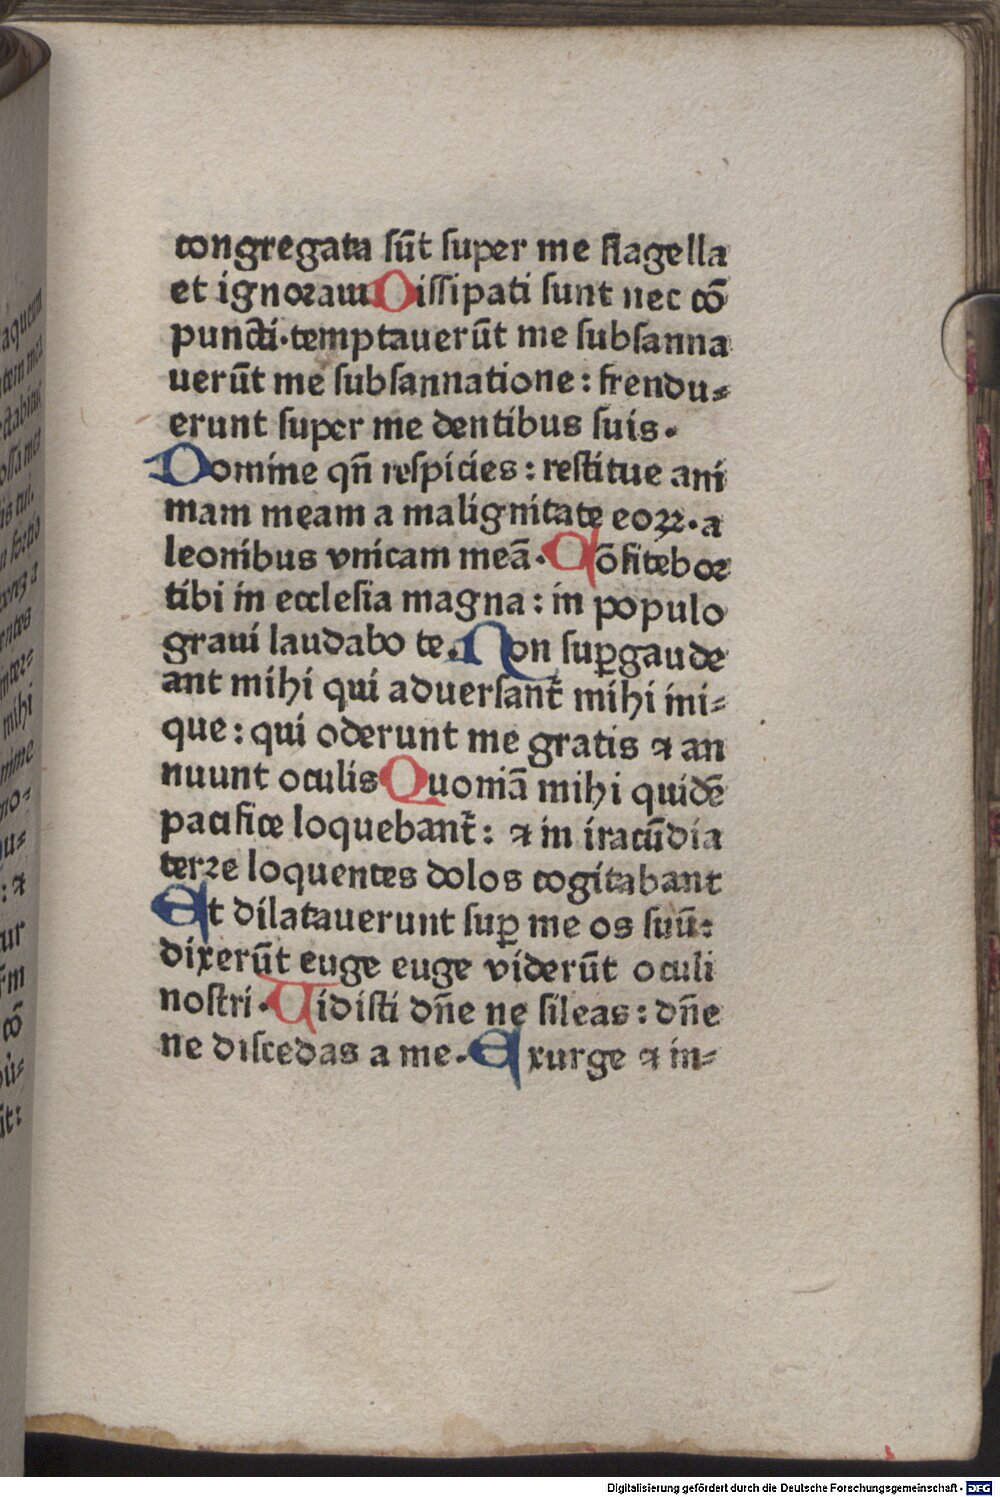 congregata sūt super me flagella
et ignoraui Dissipati sunt nec cō
puncti·temptauerūt me subsanna
uerūt me subsannatione: frendu⸗
erunt super me dentibus suis.
Domine qn̄ respicies: restitue ani
mam meam a malignitate eoꝝ.a
leonibus vnicam meā. Cōfitebor
tibi in ecclesia magna: in populo
graui laudabo te. Non suꝑgaude
ant mihi qui aduersant̄ mihi ini⸗
que: qui oderunt me gratis ⁊ an
nuunt oculis Quoniā mihi quidē
pacifice loquebant̄: ⁊ in iracūdia
terre loquentes dolos cogitabant
Et dilatauerunt suꝑ me os suū:
dixerūt euge euge viderūt oculi
nostri. Uidisti dn̄e ne sileas: dn̄e
ne discedas a me. Exurge ⁊ in⸗
Digitalisierung gefördert durch die Deutsche Forschungsgemeinschaft - DFG